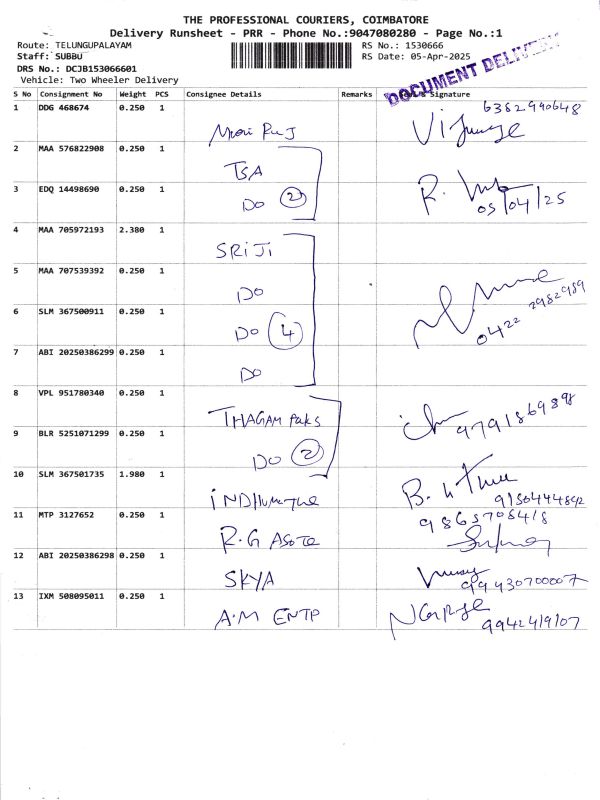 THE PROFESSIONAL COURIERS, COIMBATORE
Delivery Runsheet - PRR - Phone No.:9047080280 - Page No.:1
Route: TELUNGUPALAYAM
RS No.: 1530666
Staff: SUBBU
RS Date: 05-Apr-2025
DRS No.: DCJB153066601
Vehicle: Two Wheeler Delivery
DOCUMENT DELIVERY
S No Consignment No Weight PCS Consignee Details Remarks Signature
1 DDG 468674 0.250 1 6382990648
2 MAA 576822908 0.250 1 TSA
3 EDQ 14498690 0.250 1 DO 2 R. 05/04/25
4 MAA 705972193 2.380 1 SRIJI
5 MAA 707539392 0.250 1 DO
6 SLM 367500911 0.250 1 DO 4 0422 2982989
7 ABI 20250386299 0.250 1 DO
8 VPL 951780340 0.250 1 THAGAM Paks 9791869898
9 BLR 5251071299 0.250 1 DO 2
10 SLM 367501735 1.980 1 B. 9150444892
11 MTP 3127652 0.250 1 R.G 9865708418
12 ABI 20250386298 0.250 1 SKYA 9943070007
13 IXM 508095011 0.250 1 A.M ENTP 9942419107